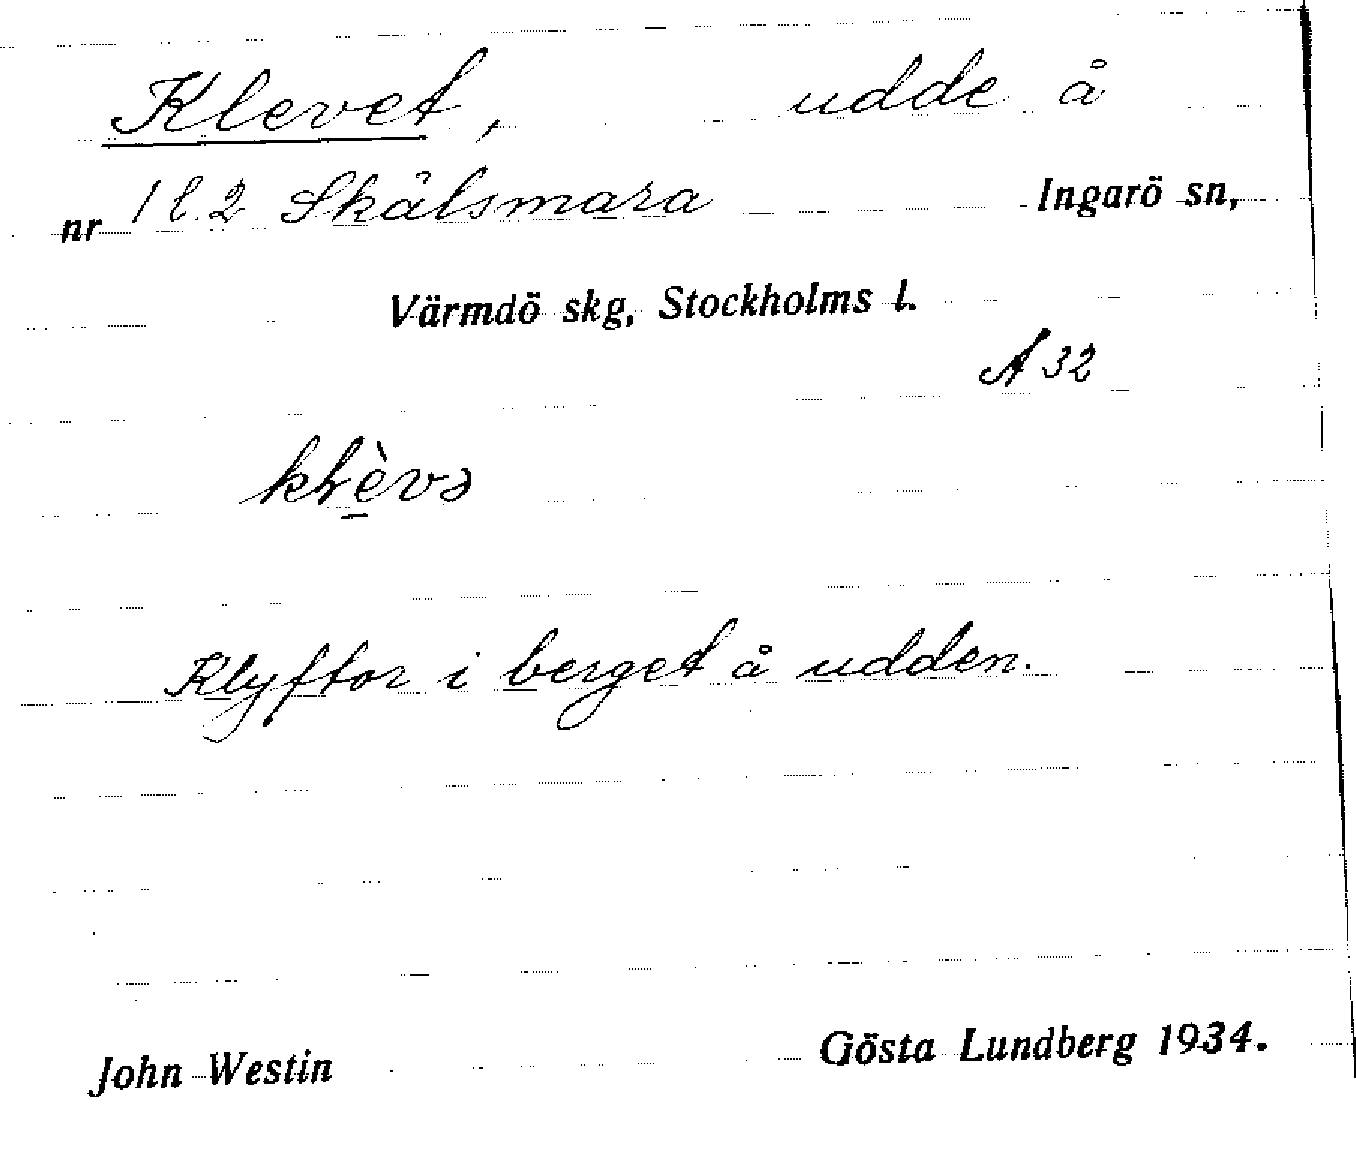 Klevet, udde å
nr 1 l. 2 Skälsmara Ingarö sn,
Värmdö skg, Stockholms l.
A 32
klèvə
Klyftor i berget å udden.
John Westin Gösta Lundberg 1934.